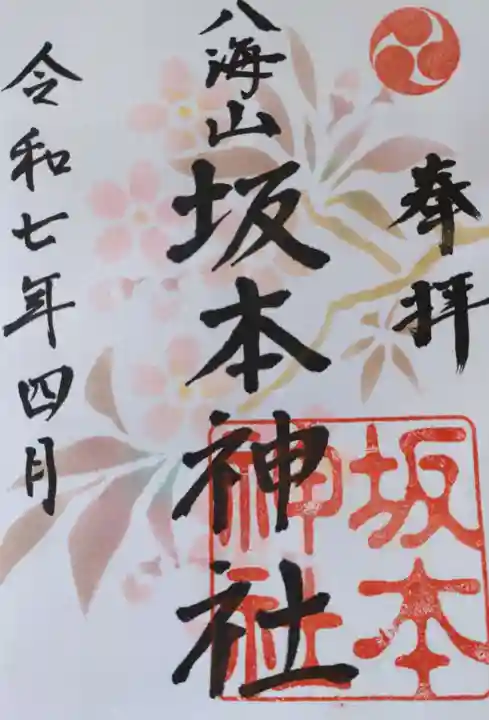 奉拝
八海山坂本神社
坂本
神社
令和七年四月